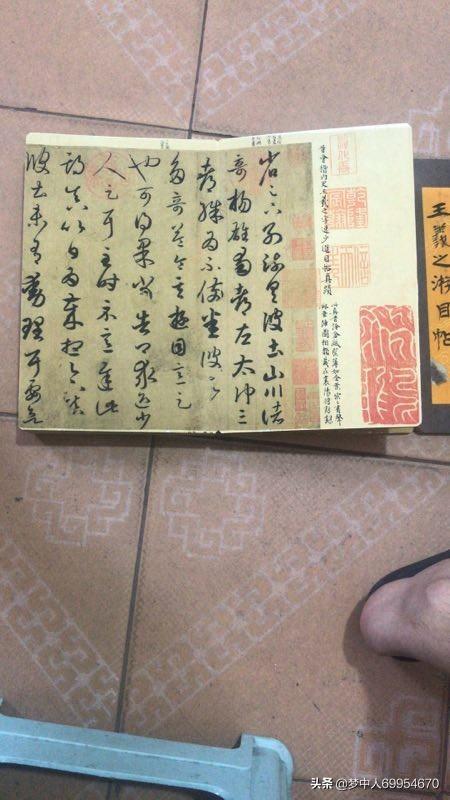 王羲之游目帖
晉會稽內史王羲之字逸少遊目帖真蹟
省足下別疏具彼土山川諸
奇楊雄蜀都左太沖三
都殊為不備悉彼故為
多奇益令其遊目意足
也可得果當告卿求迎少
人足耳至時示意遲此
期真以日為歲想足下鎮
彼土未有動理耳要欲
头条 @梦中人69954670